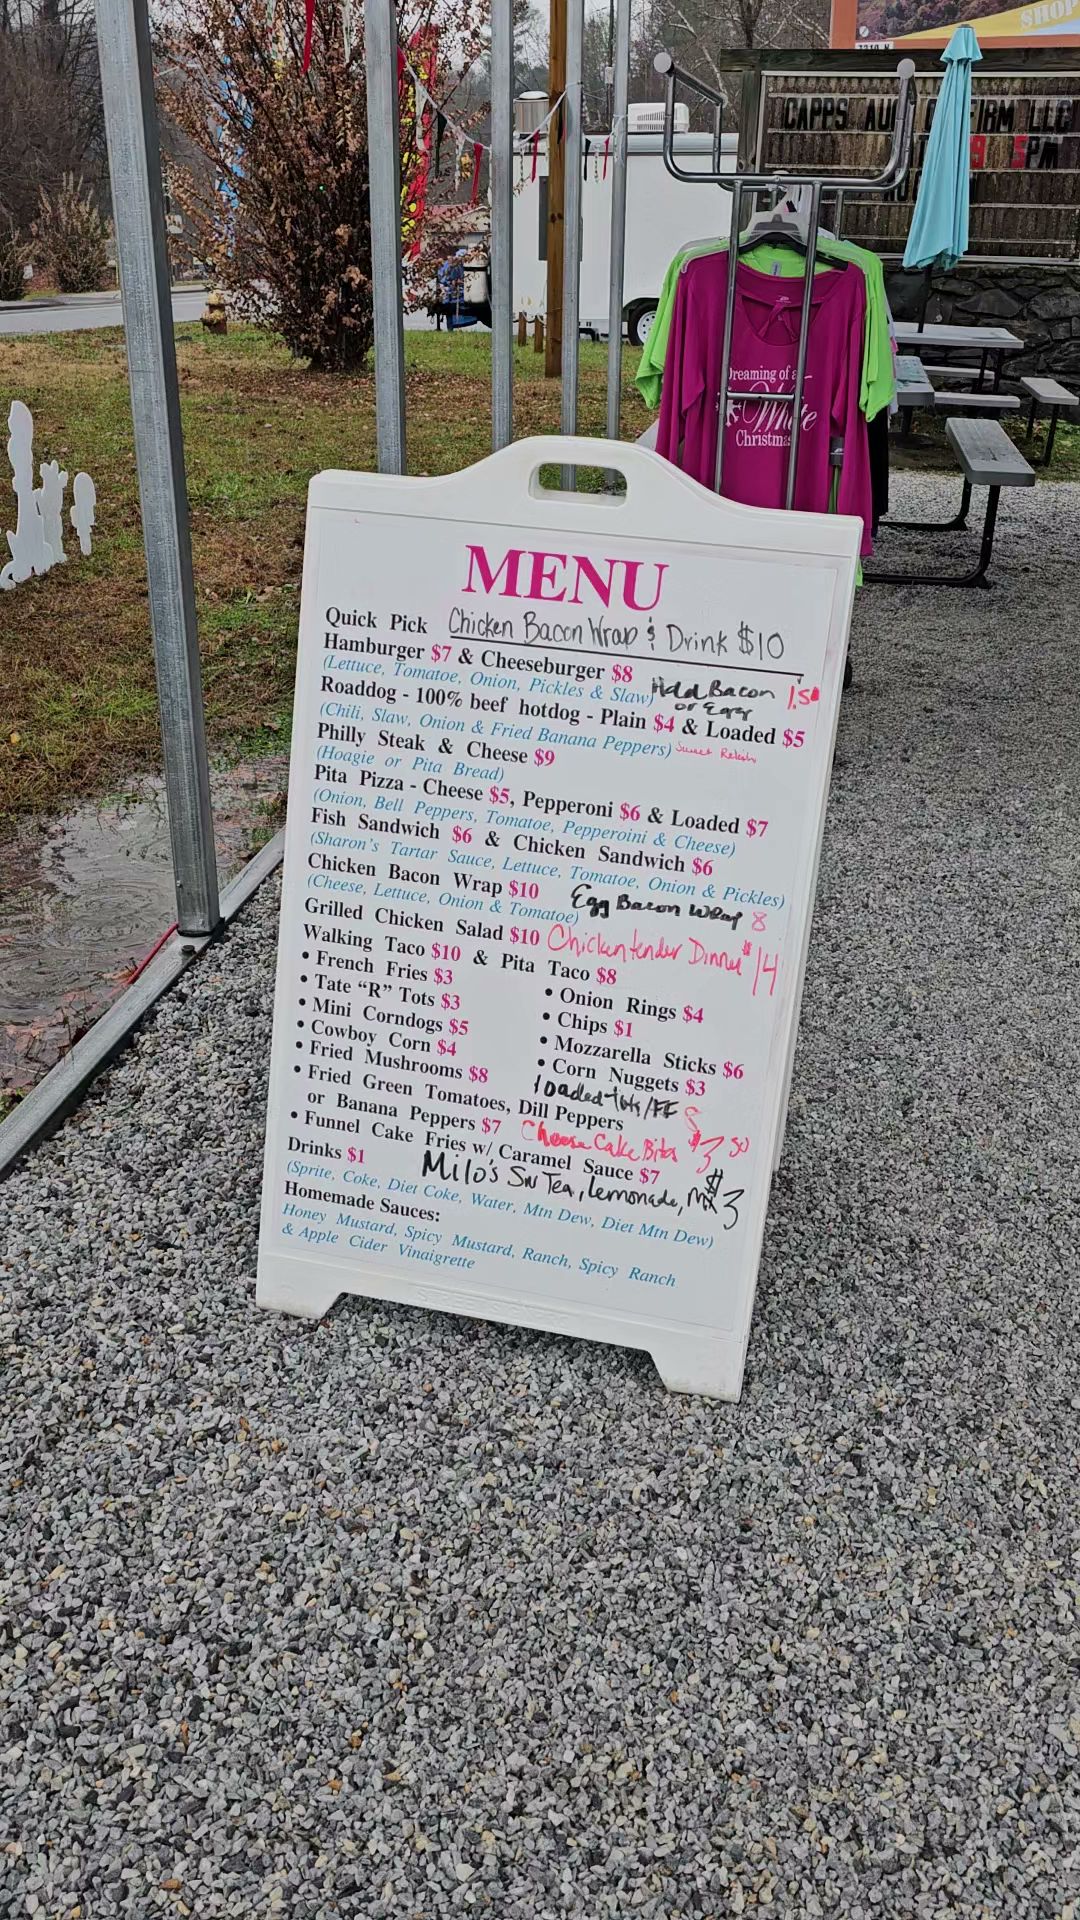 SHOP
1210 N
CAPPS AU
IBM LLC
9 5PM
Dreaming of a
White
Christmas
MENU
Quick Pick Chicken Bacon Wrap & Drink $10
Hamburger $7 & Cheeseburger $8
(Lettuce, Tomatoe, Onion, Pickles & Slaw) Add Bacon 1.50
or Egg
Roaddog - 100% beef hotdog - Plain $4 & Loaded $5
(Chili, Slaw, Onion & Fried Banana Peppers) Sweet Relish
Philly Steak & Cheese $9
(Hoagie or Pita Bread)
Pita Pizza - Cheese $5, Pepperoni $6 & Loaded $7
(Onion, Bell Peppers, Tomatoe, Pepperoini & Cheese)
Fish Sandwich $6 & Chicken Sandwich $6
(Sharon's Tartar Sauce, Lettuce, Tomatoe, Onion & Pickles)
Chicken Bacon Wrap $10 Egg Bacon Wrap 8
(Cheese, Lettuce, Onion & Tomatoe)
Grilled Chicken Salad $10 Chickentender Dinner $14
Walking Taco $10 & Pita Taco $8
• French Fries $3
• Tate “R” Tots $3
• Mini Corndogs $5
• Cowboy Corn $4
• Fried Mushrooms $8
• Onion Rings $4
• Chips $1
• Mozzarella Sticks $6
• Corn Nuggets $3
loaded tots/FF 8
• Fried Green Tomatoes, Dill Peppers
or Banana Peppers $7 Cheese Cake Bites $3 50
• Funnel Cake Fries w/ Caramel Sauce $7
Drinks $1 Milo's Sw Tea, Lemonade, Mix $3
(Sprite, Coke, Diet Coke, Water, Mtn Dew, Diet Mtn Dew)
Homemade Sauces:
Honey Mustard, Spicy Mustard, Ranch, Spicy Ranch
& Apple Cider Vinaigrette